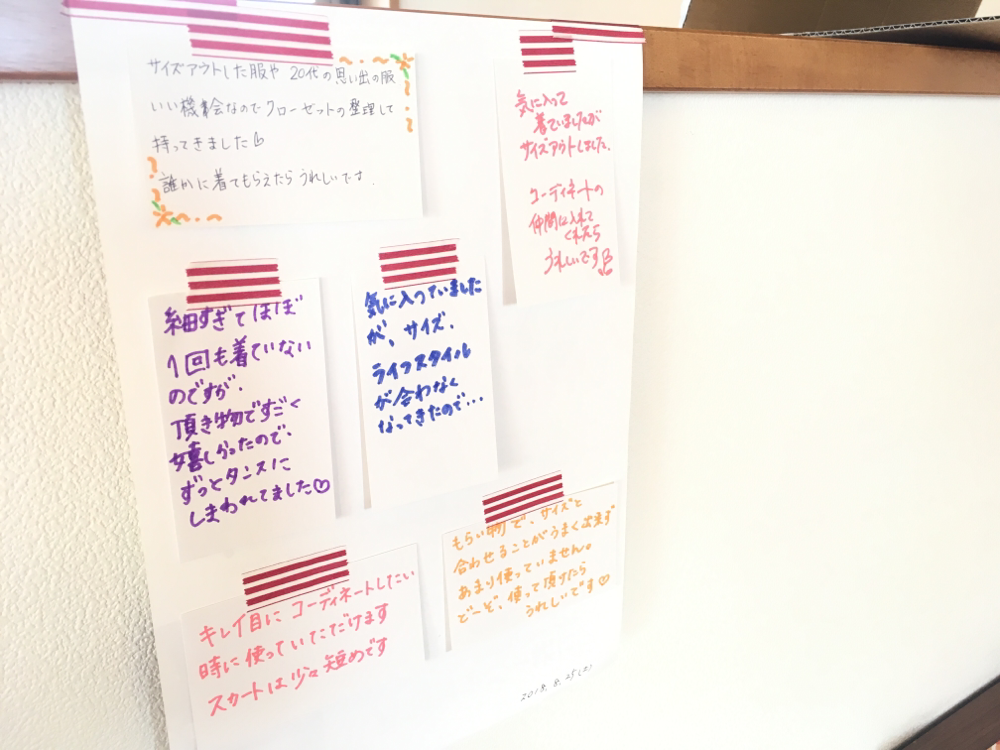 サイズアウトした服や 20代の思い出の服
いい機会なのでクローゼットの整理して
持ってきました
誰かに着てもらえたらうれしいです.
気に入って
着ていましたが
サイズアウトしました.
コーディネートの
仲間に入れて
くれたら
うれしいです
細すぎてほぼ
1回も着ていない
のですが.
頂き物ですごく
嬉しかったので、
ずっとタンスに
しまわれてました♡
気に入っていました
が、サイズ.
ライフスタイル
が合わなく
なってきたので…
もらい物で、サイズと
合わせることがうまく出来ず
あまり使っていません。
どーぞ、使って頂けたら
うれしいです♡
キレイ目に コーディネートしたい
時に使っていただけます
スカートは少々短めです
2018.8.25(土)